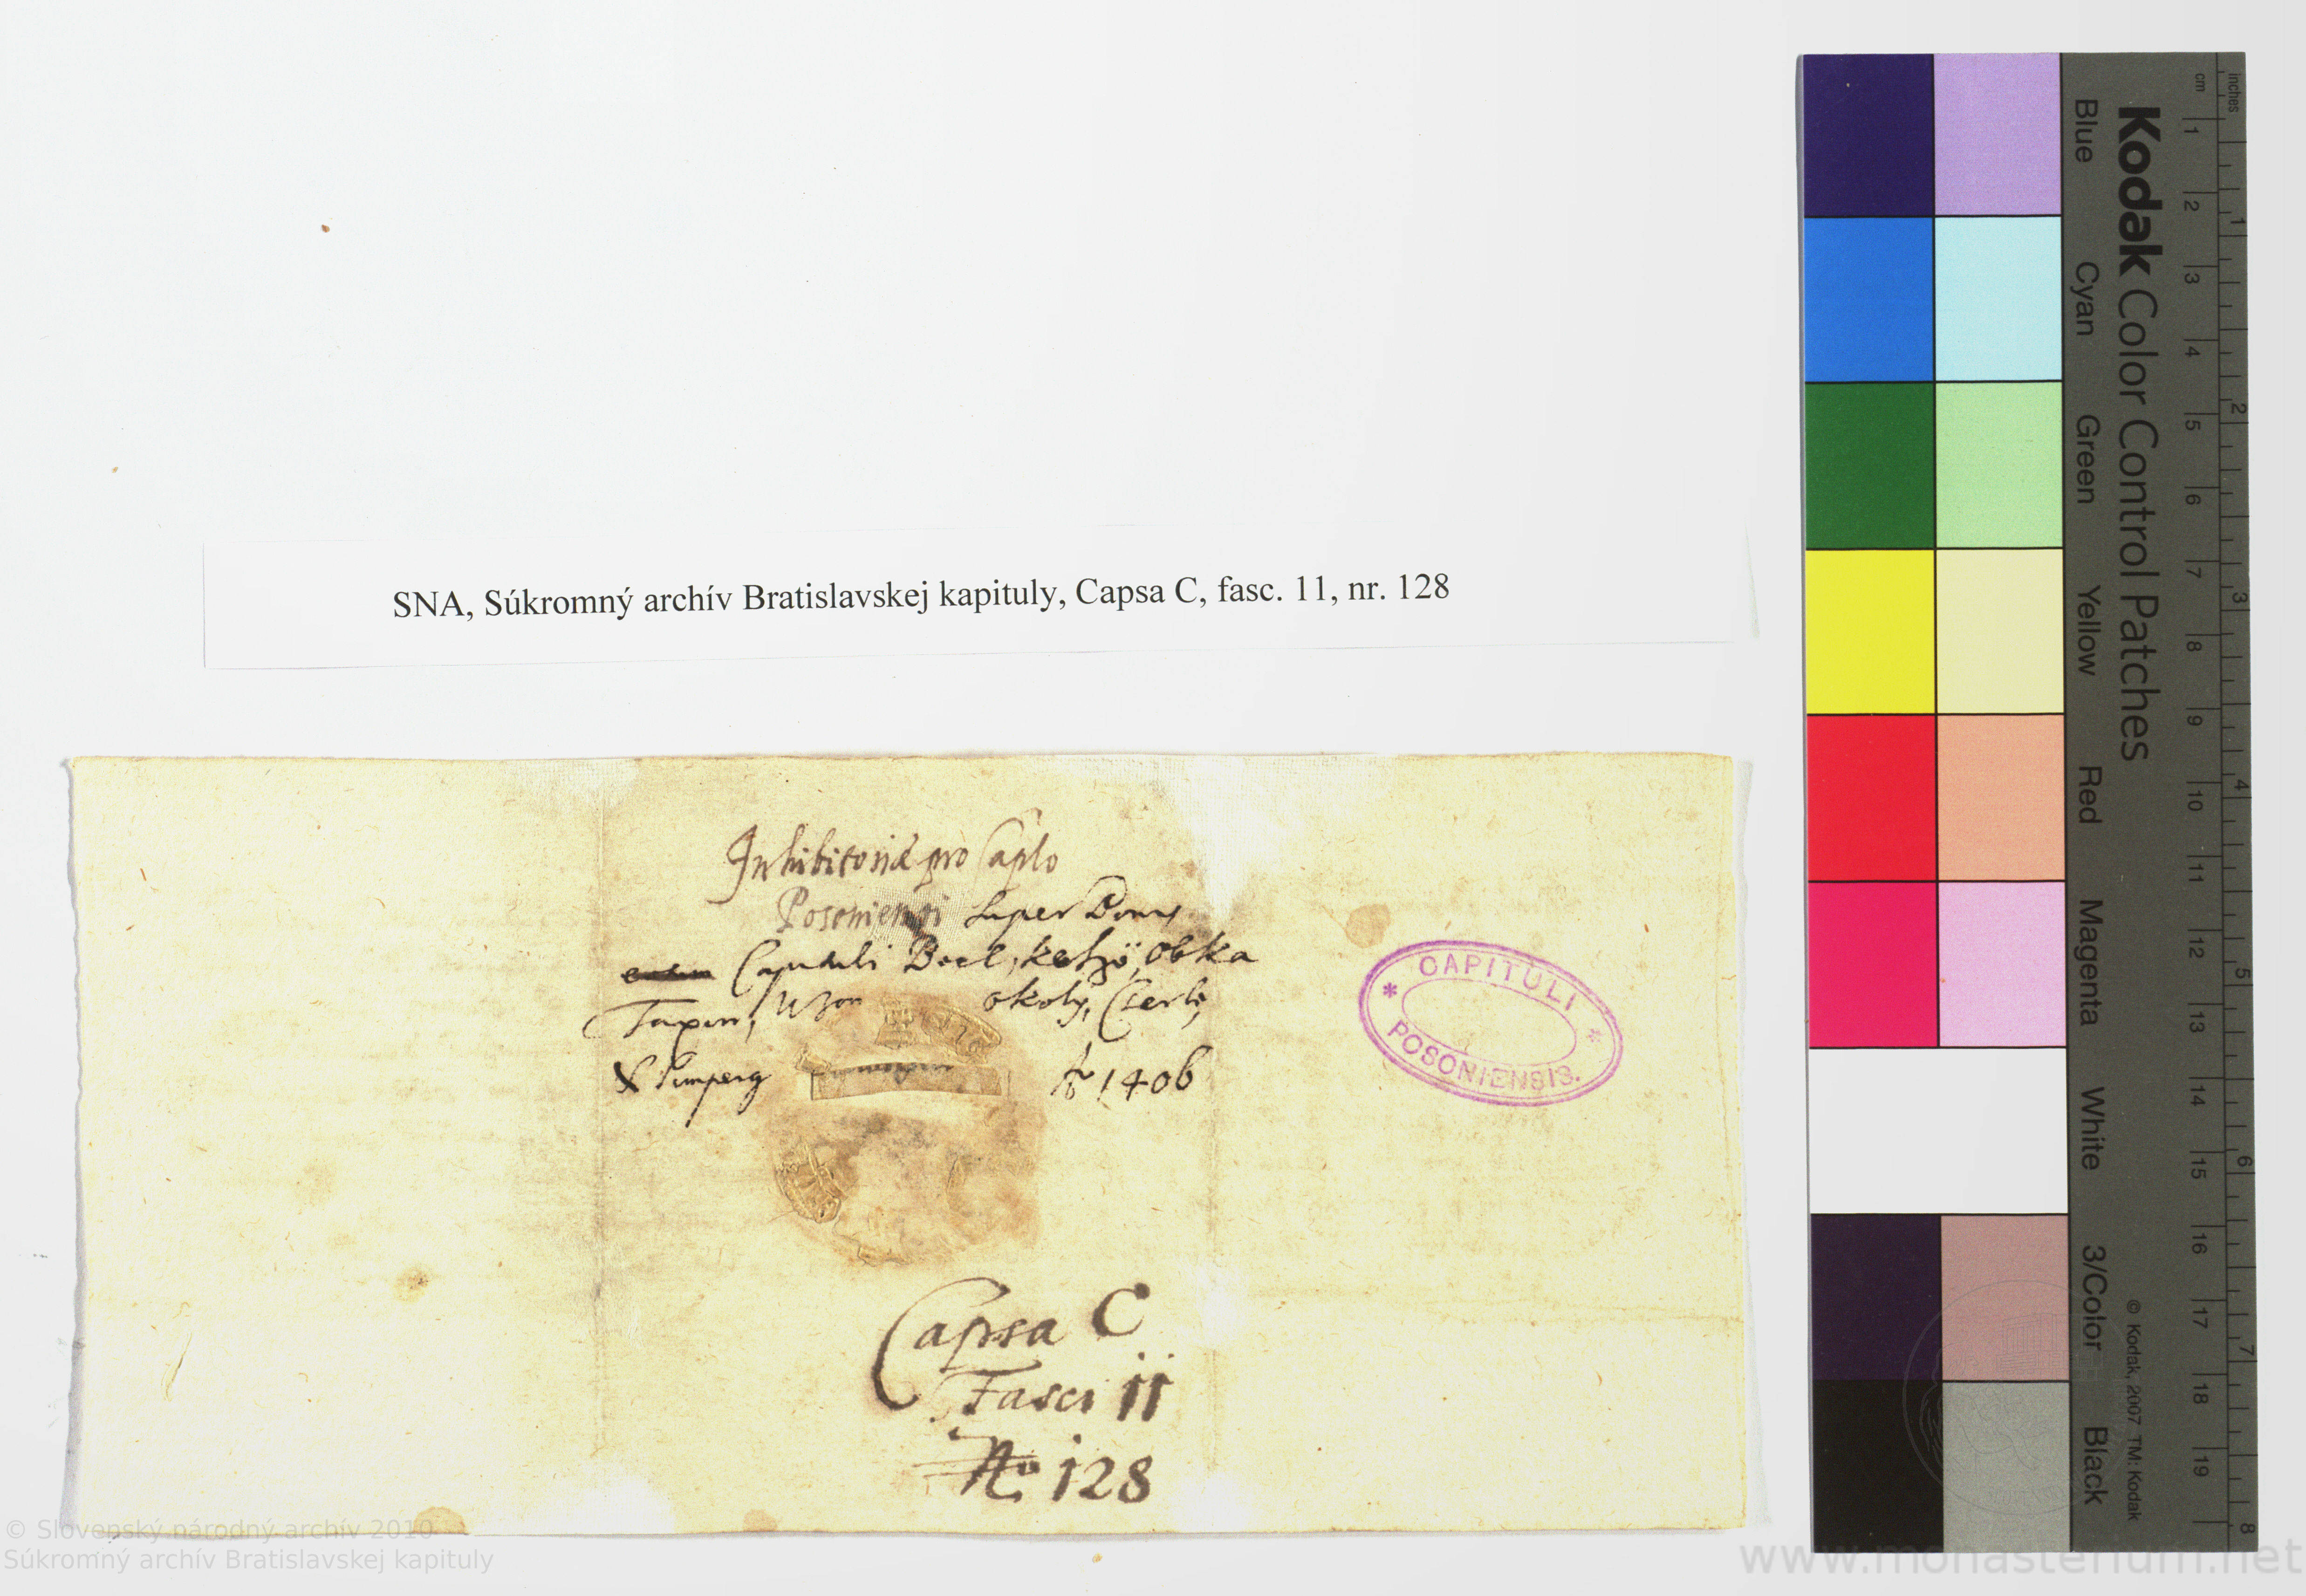 SNA, Súkromný archív Bratislavskej kapituly, Capsa C, fasc. 11, nr. 128
Inhibitoriae pro Caplo
Posoniensi super Domy
Capituli Beel, Ketző, Obka
Uzor okoly, Cserle,
& Pimperg Ao 1406
CAPITULI
* *
POSONIENSIS.
Capsa C
Fasci 11
No 128
Kodak Color Control Patches
Blue Cyan Green Yellow Red Magenta White 3/Color Black
© Kodak, 2007 TM: Kodak
cm 1 2 3 4 5 6 7 8 9 10 11 12 13 14 15 16 17 18 19
inches 1 2 3 4 5 6 7 8
© Slovenský národný archív 2010
Súkromný archív Bratislavskej kapituly
www.monasterium.net